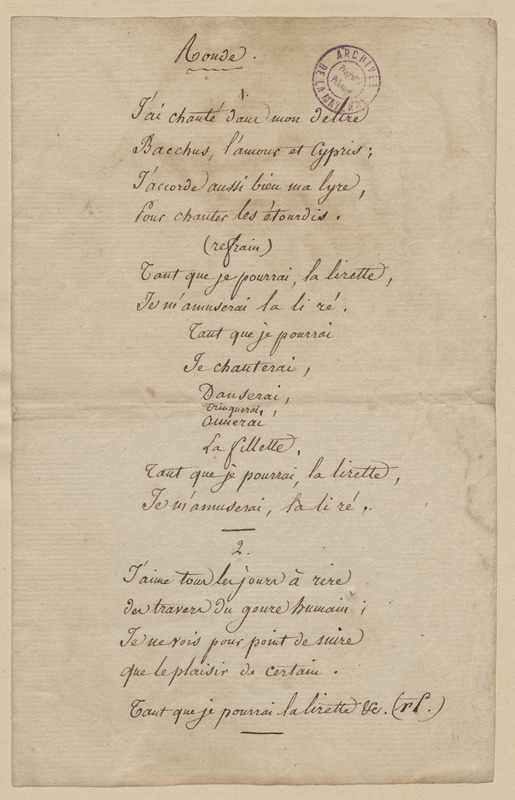 Ronde.
ARCHIVES
DE LA
1.
J'ai chanté dans mon délire
Bacchus, l'amour et Cypris;
J'accorde aussi bien ma lyre,
Pour chanter les étourdis.
(refrain)
Tant que je pourrai, la lirette,
Je m'amuserai la li ré.
Tant que je pourrai
Je chanterai,
Danserai,
trinquerai,
Aimerai
La fillette.
Tant que je pourrai, la lirette,
Je m'amuserai, la li ré.
2.
J'aime tous les jours à rire
des travers du genre humain;
Je ne vois pour point de mire
que le plaisir de certain.
Tant que je pourrai la lirette &c. (rf.)